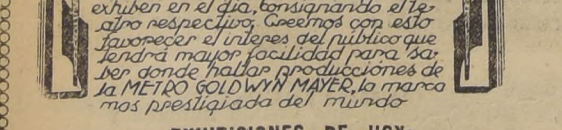 exhiben en el dia, consignando el te-
atro respectivo. Creemos con esto
favorecer el interes del publico que
tendrá mayor facilidad para sa-
ber donde hallar producciones de
la METRO GOLDWYN MAYER, la marca
mas prestigiada del mundo
EXHIBICIONES DE HOY